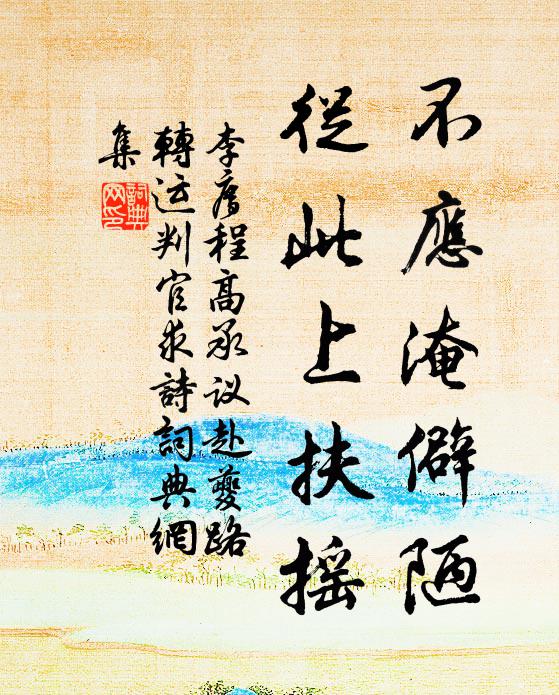 不應淹僻陋
從此上扶搖
李廌程高承议赴夔路
轉运判官求詩詞典網
集
詞典網印